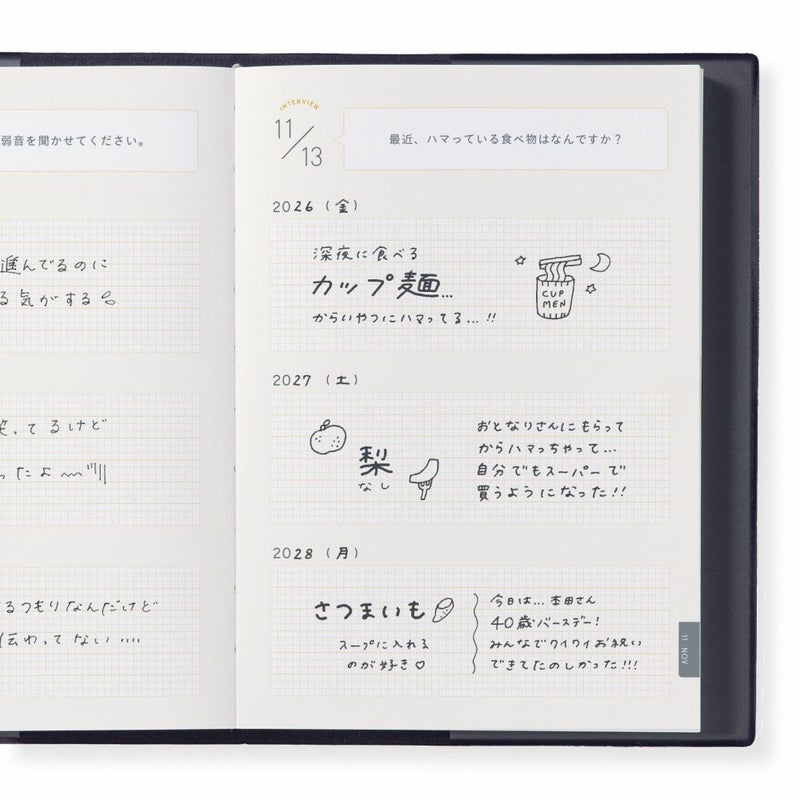 弱音を聞かせてください。
進んでるのに
る気がする
笑ってるけど
ったよ
るつもりなんだけど
伝わってない....
INTERVIEW
11/13
最近、ハマっている食べ物はなんですか？
2026 (金)
深夜に食べる
カップ麺...
からいやつにハマってる...!!
CUP
MEN
2027 (土)
梨
なし
おとなりさんにもらって
からハマっちゃって...
自分でもスーパーで
買うようになった!!
2028 (月)
さつまいも
スープに入れる
のが好き♡
今日は... 本田さん
40歳バースデー!
みんなでワイワイお祝い
できてたのしかった!!!
11 NOV